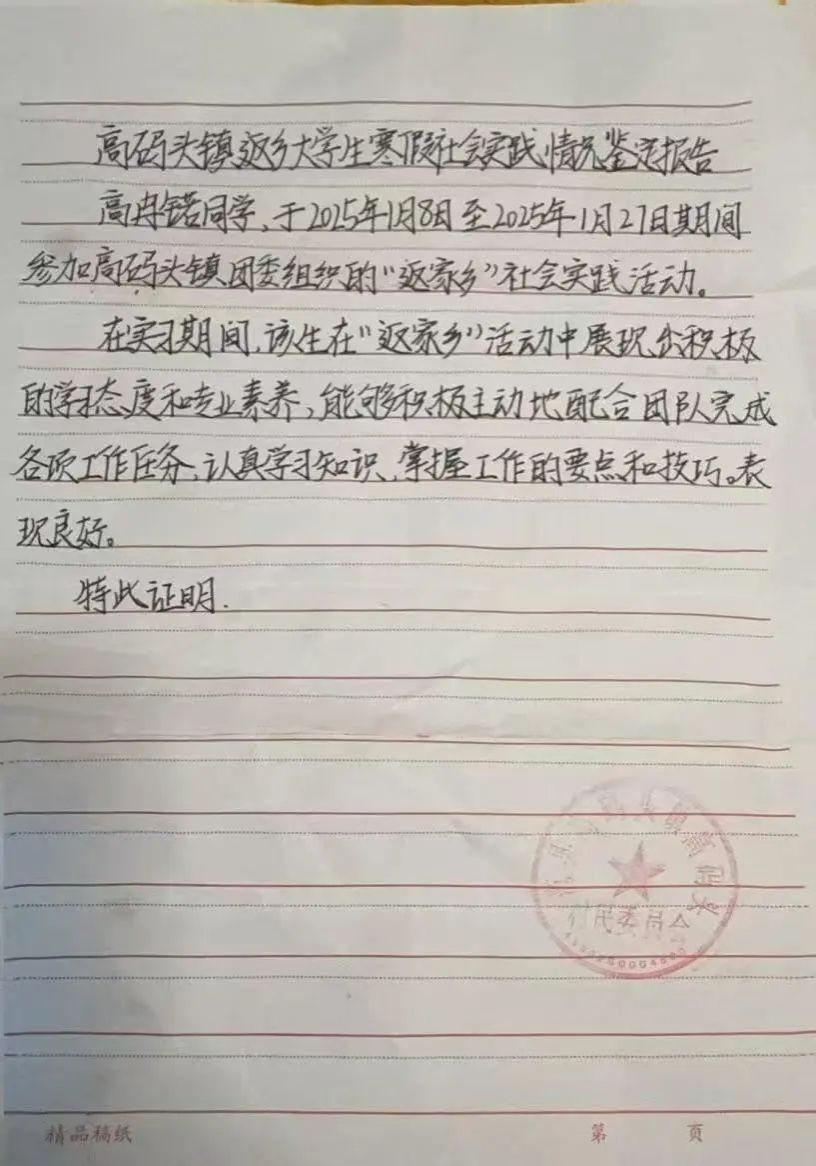 高码头镇返乡大学生寒假社会实践情况鉴定报告
高冉锘同学,于2025年1月8日至2025年1月27日期间
参加高码头镇团委组织的“返家乡”社会实践活动。
在实习期间,该生在“返家乡”活动中展现出积极
的学习态度和专业素养,能够积极主动地配合团队完成
各项工作任务、认真学习知识、掌握工作的要点和技巧。表
现良好。
特此证明.
村民委员会
精品稿纸 第 页